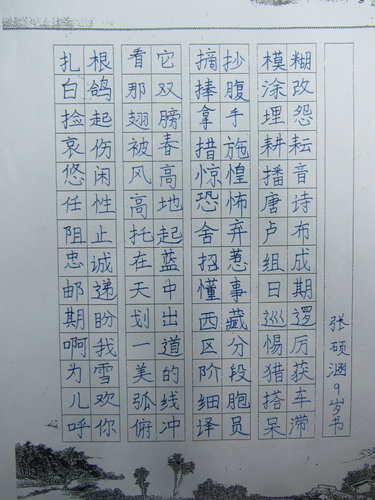 扎根
白鸽
捡起
哀伤
悠闲
任性
阻止
忠诚
邮递
期盼
啊我
为雪
儿欢
呼你
看它
那双
翅膀
被春
风高
高地
托起
在蓝
天中
划出
一道
美的
弧线
俯冲
摘抄
捧腹
拿手
措施
惊惶
恐怖
舍弃
招惹
懂事
西藏
区分
阶段
细胞
译员
模糊
涂改
埋怨
耕耘
播音
唐诗
卢布
组成
日期
巡逻
惕厉
猎获
搭车
呆滞
张硕涵9岁书